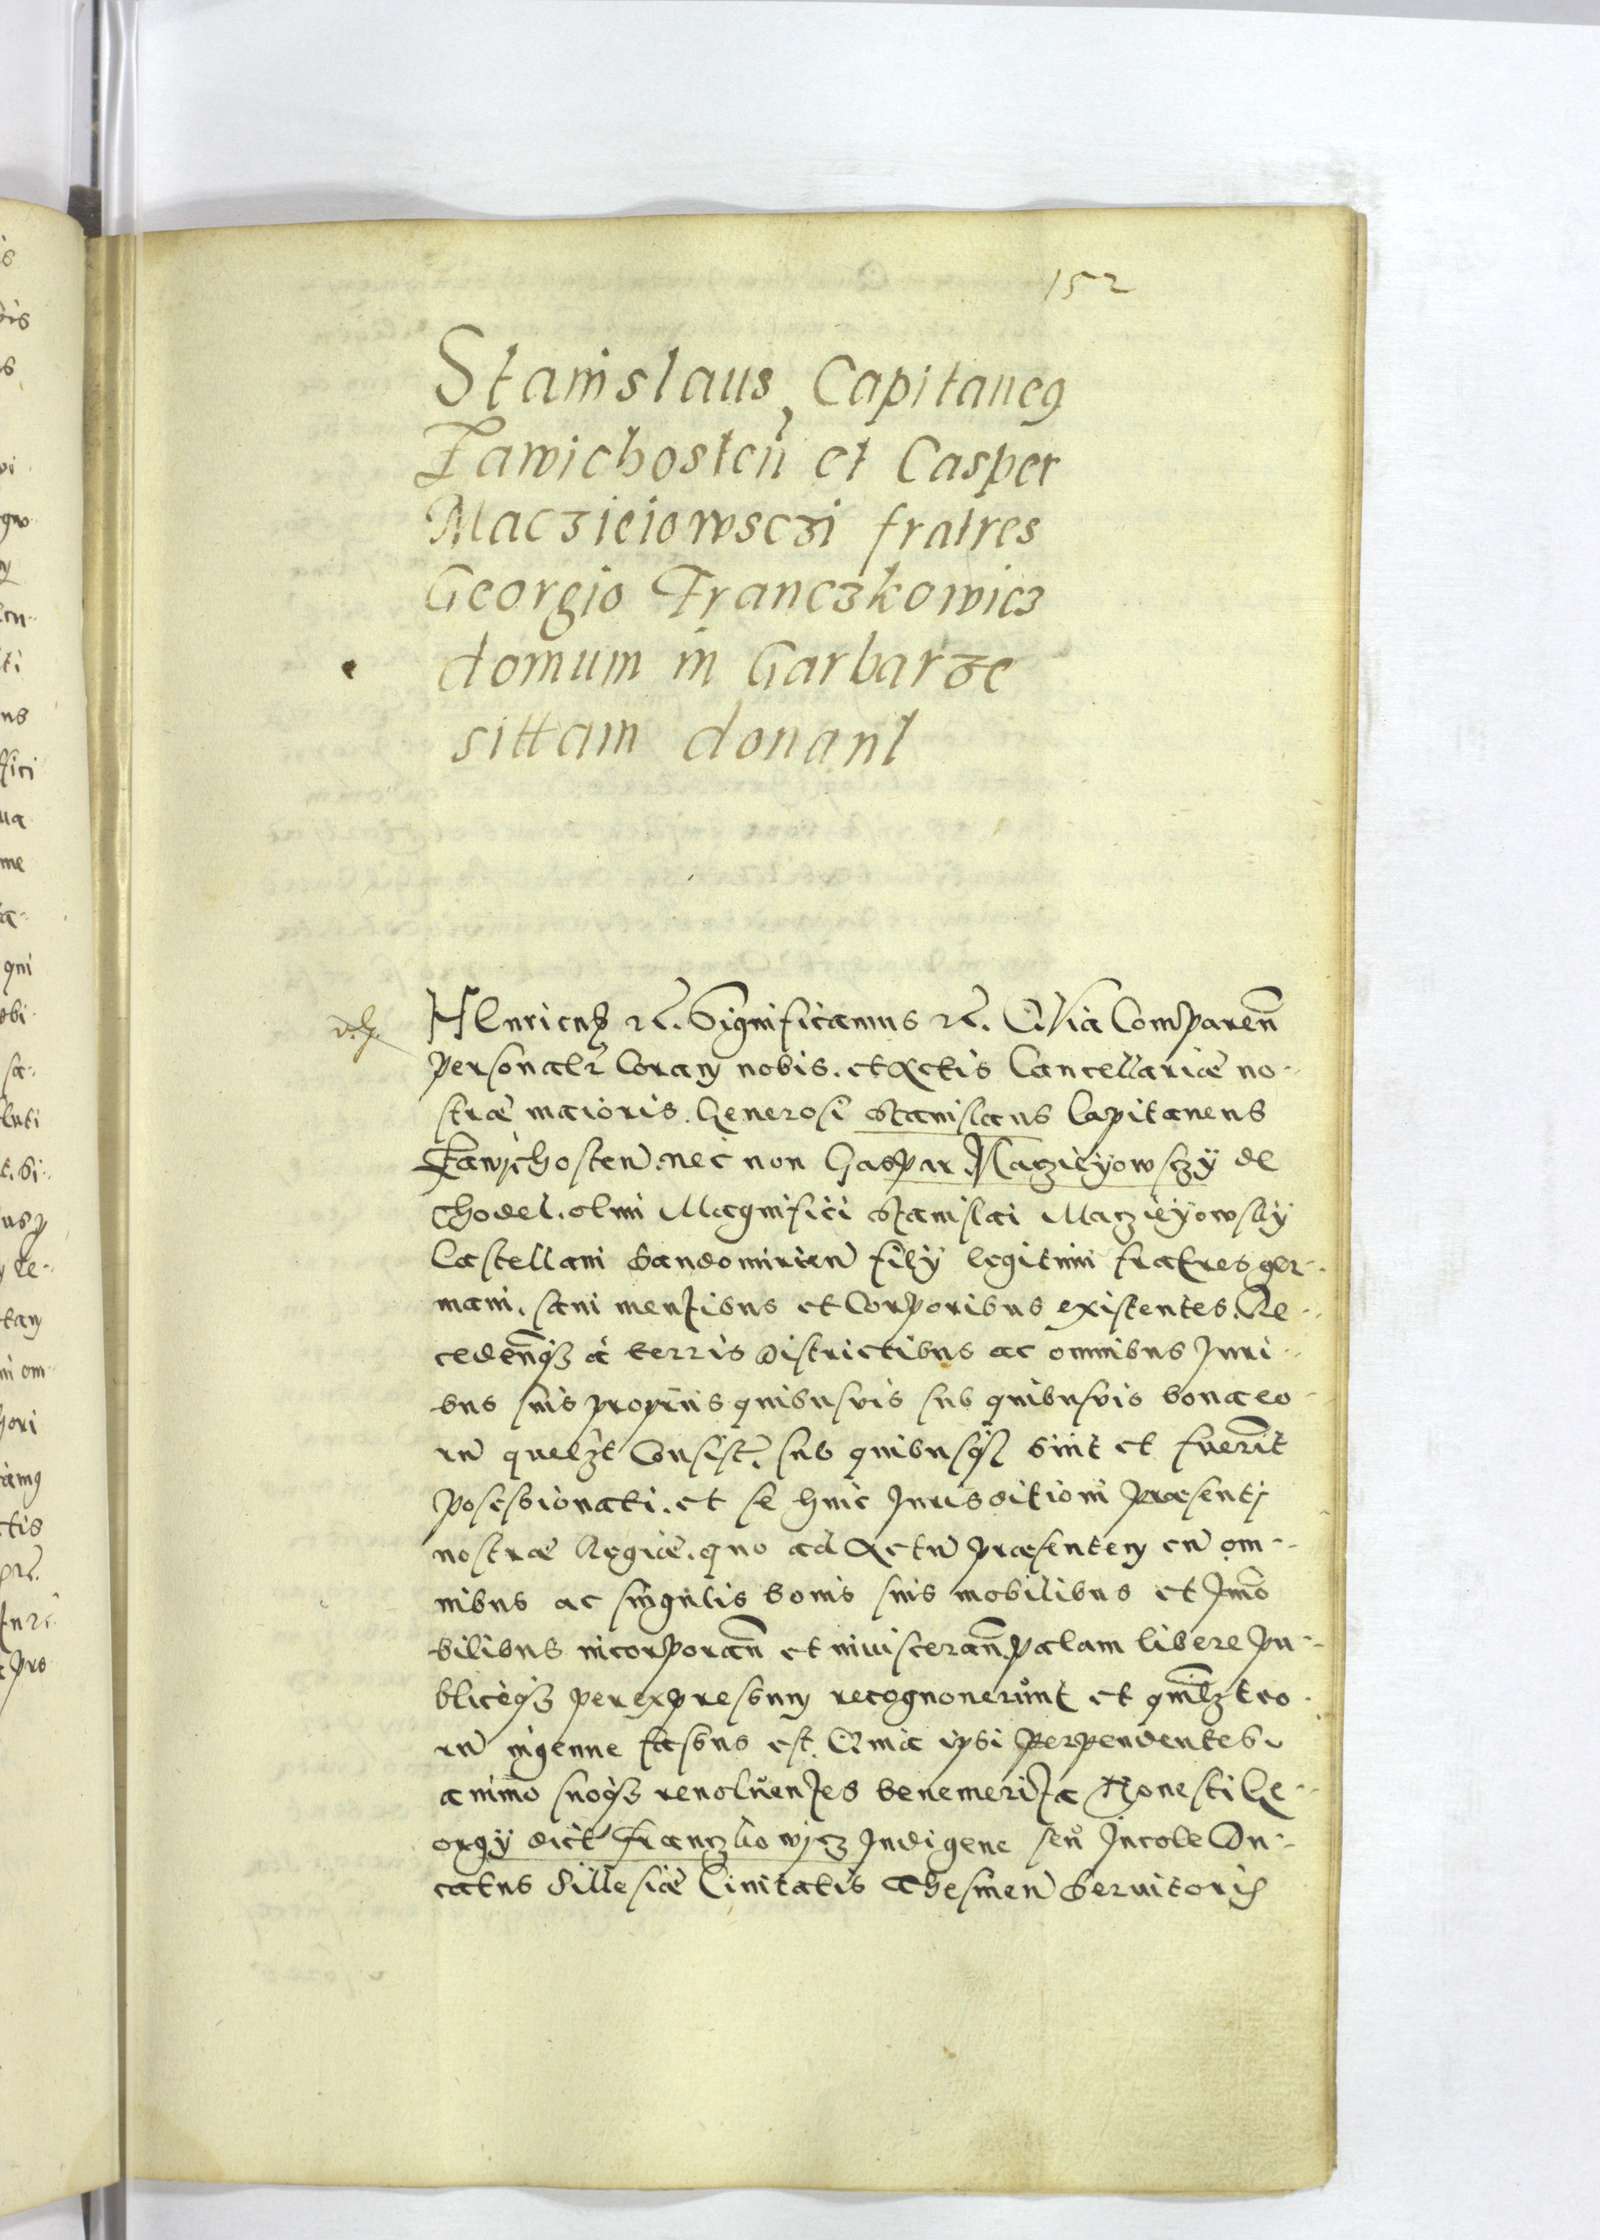 152
Stanislaus Capitaneus
Zawichosten et Casper
Maczieiowsczi fratres
Georgio Franczkowicz
domum in Garbarze
sittam donant
HEnricus etc. Significamus etc. Quia Comparen
personalr Coram nobis. et Actis Cancellariæ no-
stræ maioris. Generosi Stanislaus Capitaneus
Zawichosten. nec non Gaspar Maczieyowsczÿ de
Chodel. olim Magnifici Stanislai Maczieÿowskÿ
Castellani Sandomirien filÿ legitimi fratres ger-
mani, sani mentibus et Corporibus existentes. Re-
cedenqz à terris districtibus ac omnibus Juri-
bus suis proprijs quibusuis sub quibusuis bona eo-
ru quelzt Consist. sub quibusqz sint et fuerint
possessionati. et se huic Jurisditioni Præsenti
nostræ Regiæ. quo ad Actu præsentem cu om-
nibus ac singulis bonis suis mobilibus et Jmo
bilibus incorporan et inuisceran palam libere pu-
bliceqz per expressum recognouerunt et quilzt eo-
ru ingenue fassus est. Quia ipsi Perpendentes
animo suoqz reuoluentes benemerita Honesti Ge-
orgÿ dict Franczkowicz Indigene seu Jncole Du-
catus Sillesiæ Ciuitatis Thesinen Seruitoris